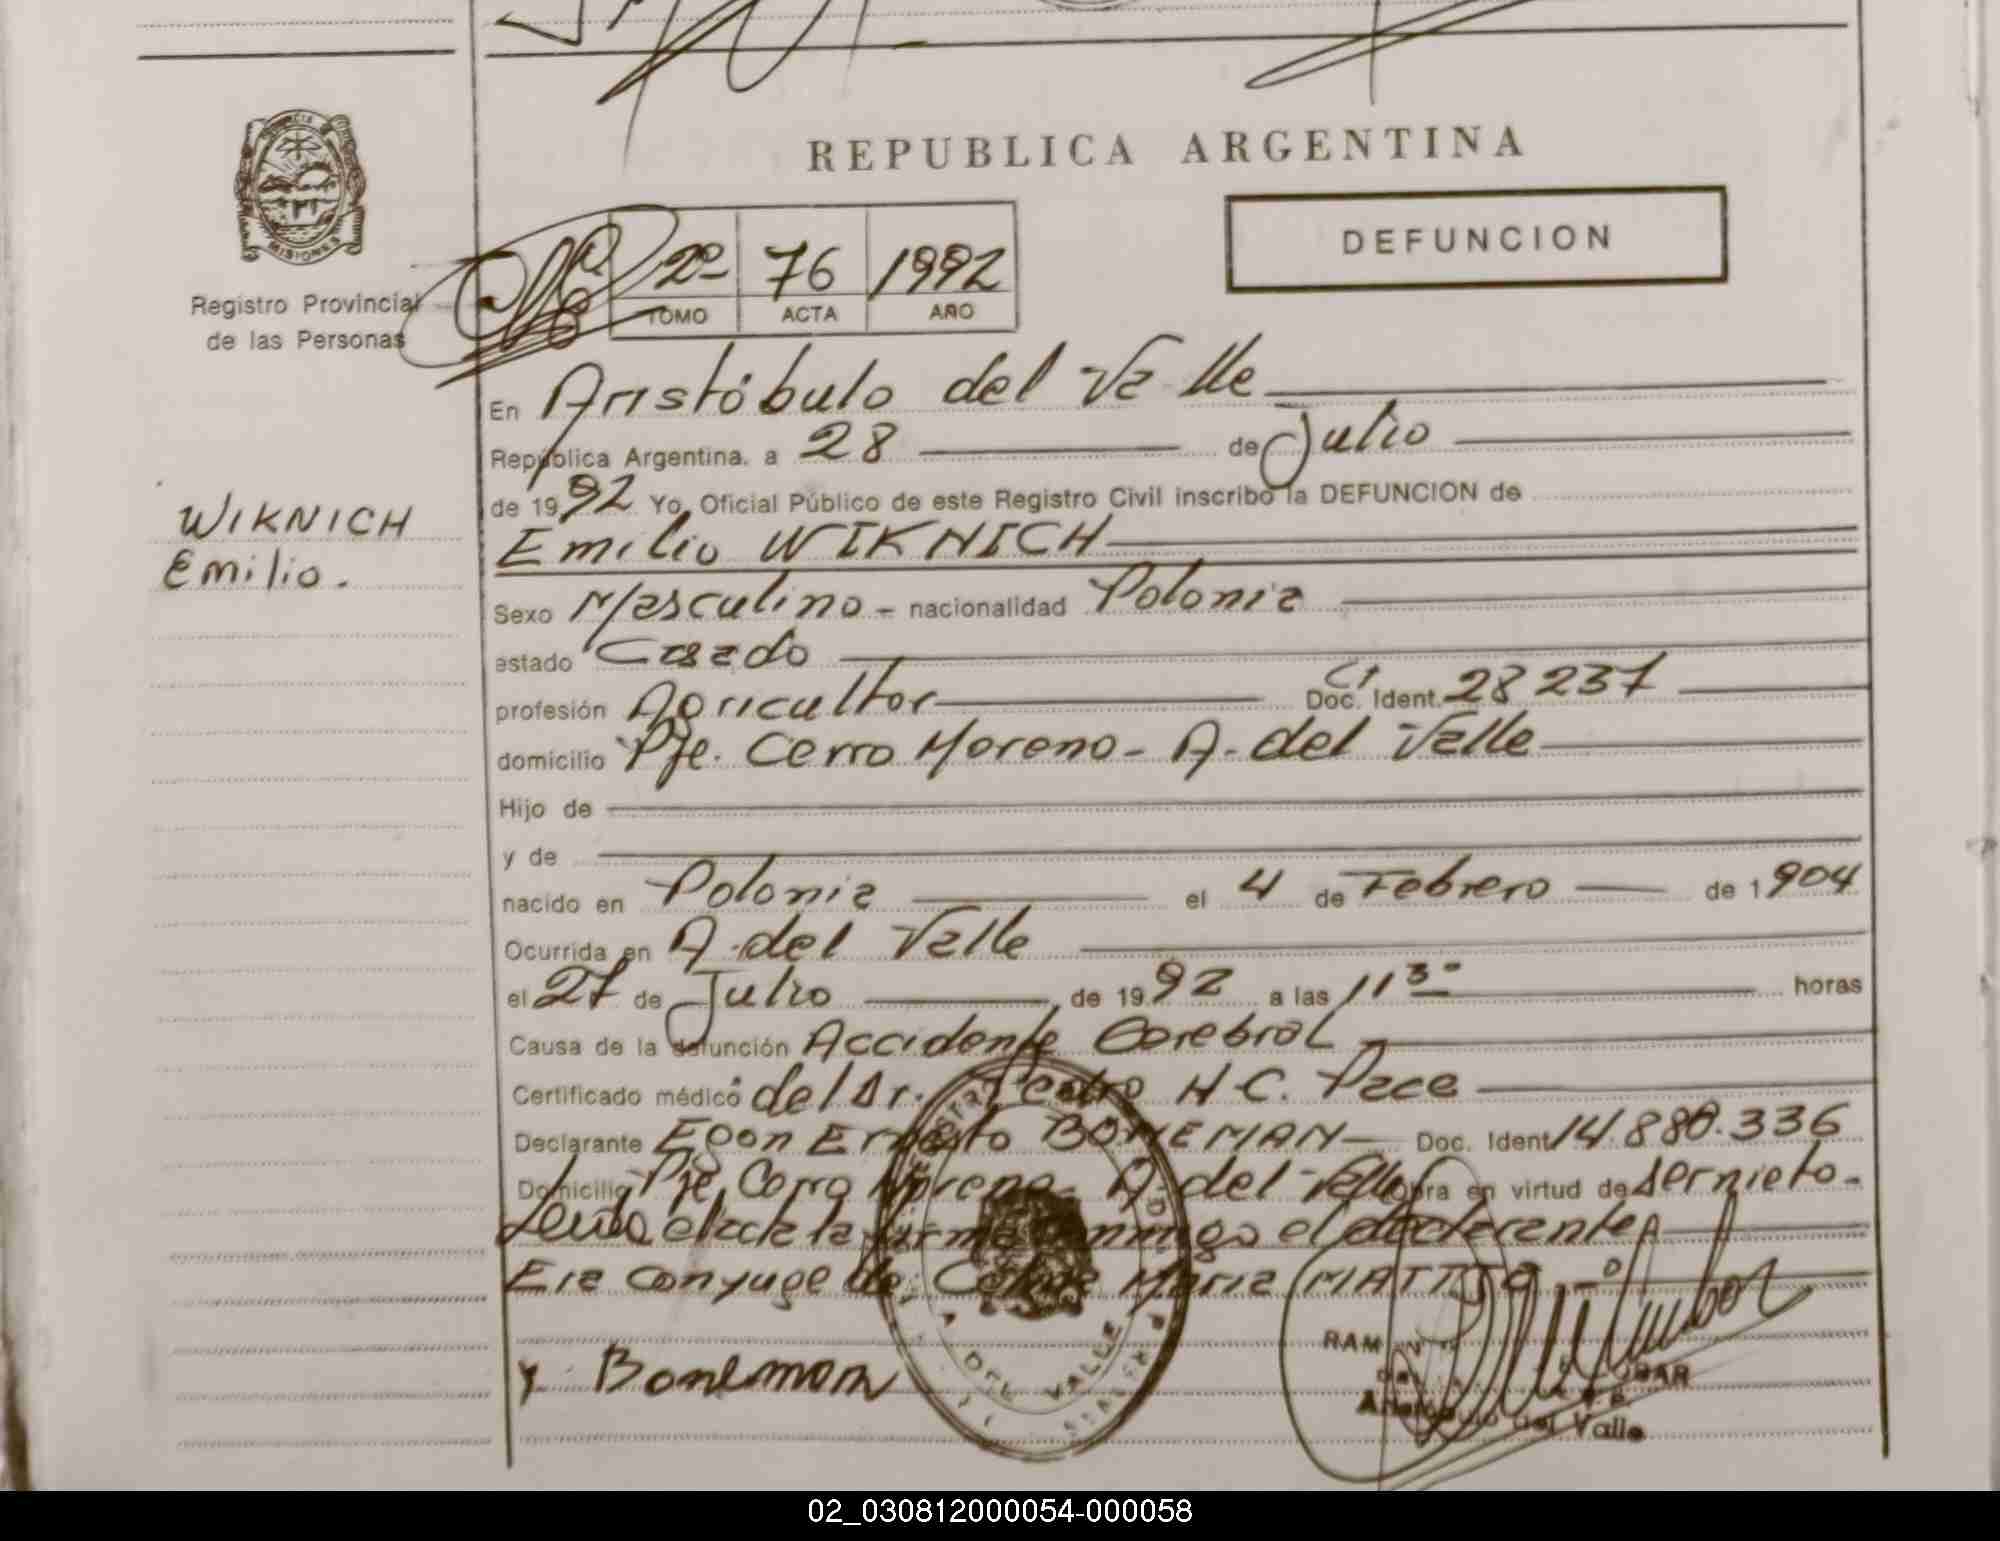 REPUBLICA ARGENTINA
PROVINCIA
MISIONES
Registro Provincial
de las Personas
2º 76 1992
TOMO ACTA AÑO
DEFUNCION
WIKNICH
Emilio.
En Aristóbulo del Valle
República Argentina, a 28 de Julio
de 1992 Yo, Oficial Público de este Registro Civil inscribo la DEFUNCION de
Emilio WIKNICH
Sexo Masculino - nacionalidad Polonia
estado Casado
profesión Agricultor Doc. Ident. CI 28237
domicilio Pje. Cerro Moreno - A. del Valle
Hijo de
y de
nacido en Polonia el 4 de Febrero de 1904
Ocurrida en A. del Valle
el 27 de Julio de 1992 a las 11³⁰ horas
Causa de la defunción Accidente Cerebral
Certificado médico del Dr. Pedro H. C. Pace
Declarante Egon Ernesto BONEMAN Doc. Ident 14.880.336
Domicilio Pje. Cerro Moreno - A. del Valle Obra en virtud de ser nieto.
Leida el acta la firma conmigo el declarante
Era conyuge de, Maria
y Boneman
DEL VALLE
Aristóbulo del Valle
02_030812000054-000058